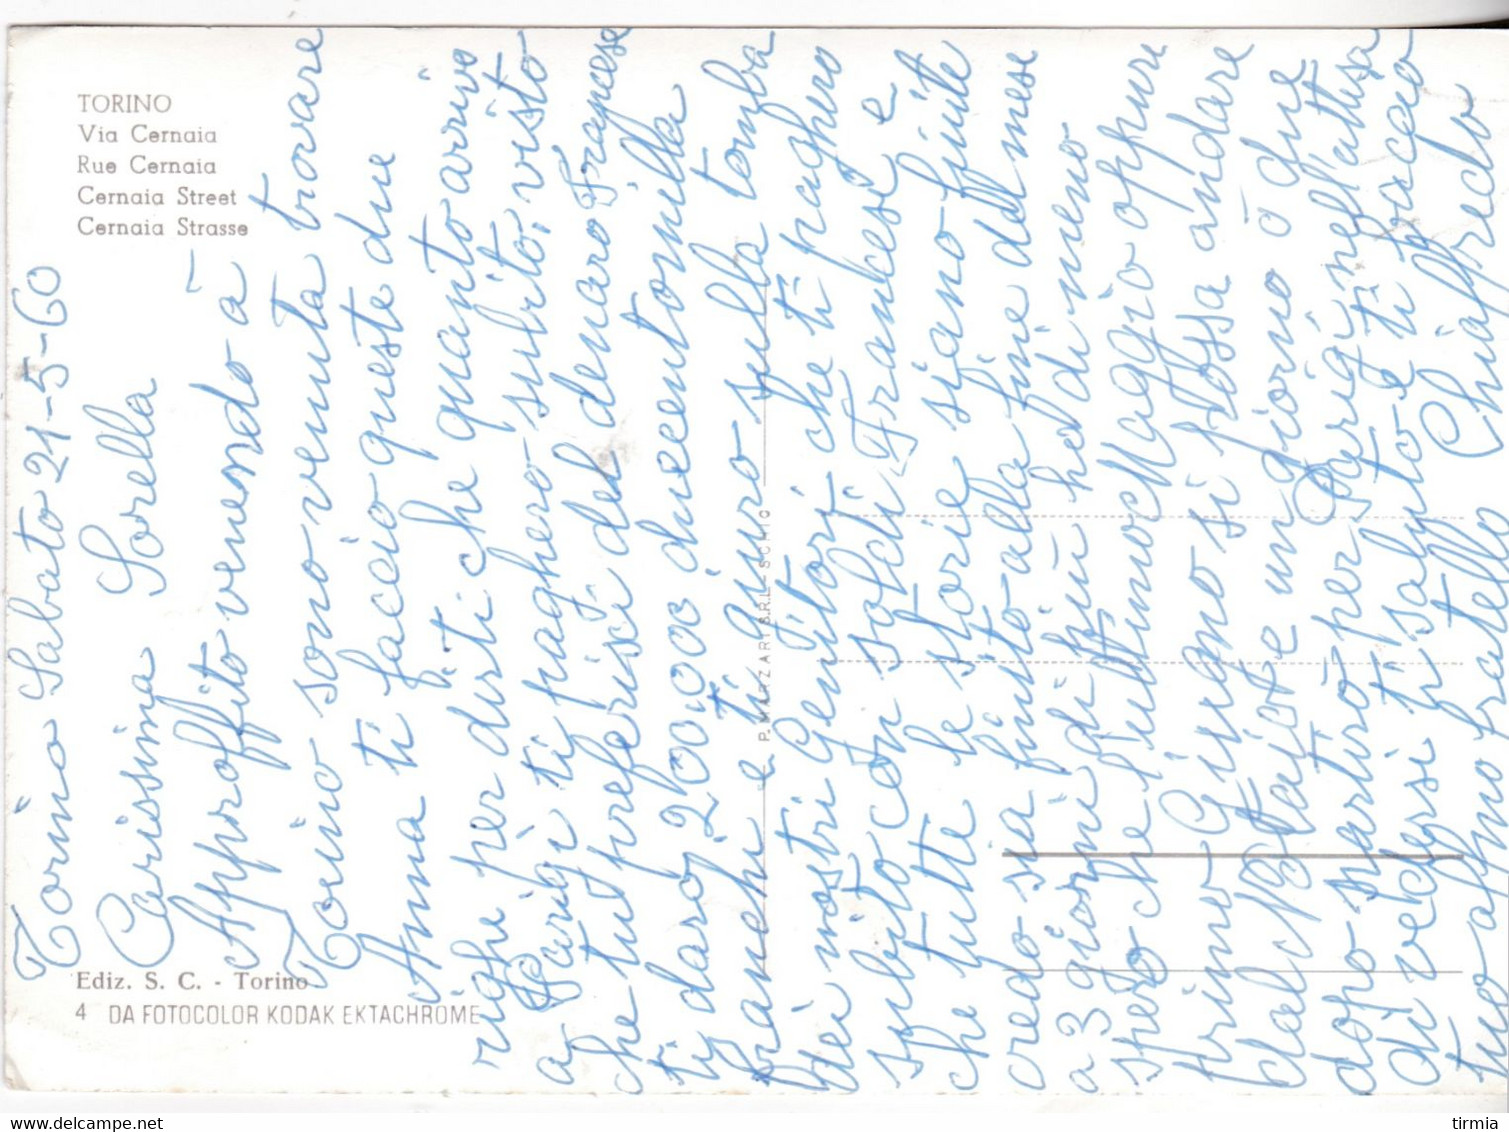 TORINO
Via Cernaia
Rue Cernaia
Cernaia Street
Cernaia Strasse
Torino Sabato 21-5-60
Carissima Sorella
Approffito venendo à
Torino sono venuta trovare
Anna ti faccio queste due
righe per dirti che quanto arrivo
a Parigi ti pagherò subito, visto
che tu preferisci del denaro Francese
ti darò, 200,00 duecentomilla
franchi e ti giuro sulla tomba
dei nostri Genitori che ti pagherò
subito con soldi Francese e
che tutte le storie siano finite
credo sia finito alla fine del mese
a 3 giorni di più ho di meno
spero che l'ultimo Maggio oppure
primo Giugno si possa andare
dal e un giorno ò due
dopo partirò per Parigi nell'attesa
di vedersi ti saluto e ti bacio
tuo affmo fratello Chiaffredo
Ediz. S. C. - Torino
4 DA FOTOCOLOR KODAK EKTACHROME
P. MARZARI S.R.L. - SCHIO
tirmia
delcampe.net